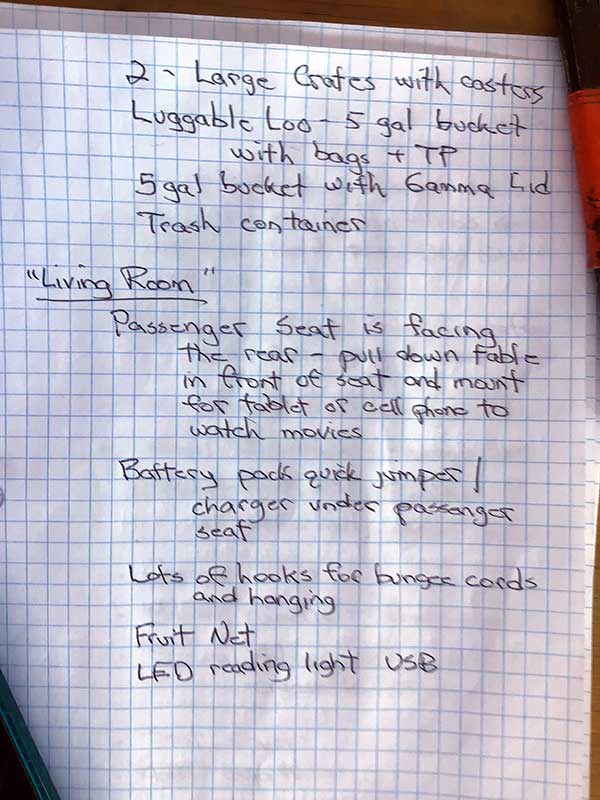 2 - Large Crates with casters
Luggable Loo - 5 gal bucket
with bags + TP
5 gal bucket with Gamma Lid
Trash container
"Living Room"
Passenger Seat is facing
the rear - pull down table
in front of seat and mount
for tablet or cell phone to
watch movies
Battery pack quick jumper /
charger under passenger
seat
Lots of hooks for bungee cords
and hanging
Fruit Net
LED reading light USB